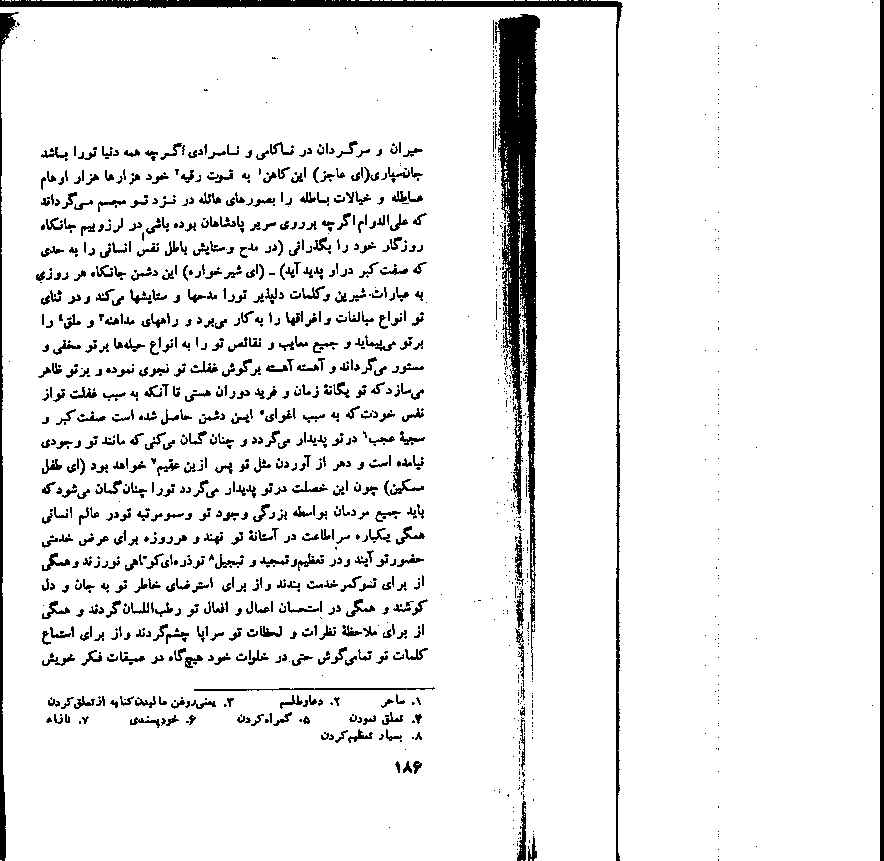 حیران و سرگردان در ناکامی و نامرادی اگرچه همه دنیا تورا باشد
جان‌سپاری (ای عاجز) این کاهن۱ به قوت رقیه۲ خود هزارها هزار اوهام
عاطله و خیالات باطله را بصورهای هائله در نزد تو مجسم می‌گرداند
که علی‌الدوام اگرچه برروی سریر پادشاهان بوده باشی در لرزوبیم جانکاه
روزگار خود را بگذرانی (در مدح وستایش باطل نفس انسانی را به حدی
که صفت کبر دراو پدید آید) ـ (ای شیرخواره) این دشمن جانکاه هر روزی
به عبارات شیرین وکلمات دلپذیر تورا مدحها و ستایشها می‌کند و در ثنای
تو انواع مبالغات واغراقها را به‌کار می‌برد و راههای مداهنه۳ و ملق۴ را
برتو می‌پیماید و جمیع معایب و نقائص تو را به انواع حیله‌ها برتو مخفی و
مستور می‌گرداند و آهسته آهسته برگوش غفلت تو نجوی نموده و برتو ظاهر
می‌سازد که تو یگانۀ زمان و فرید دوران هستی تا آنکه به سبب غفلت تو از
نفس خودت که به سبب اغوای۵ این دشمن حاصل شده است صفت کبر و
سجیۀ عجب۶ درتو پدیدار می‌گردد و چنان گمان می‌کنی که مانند تو وجودی
نیامده است و دهر از آوردن مثل تو پس ازین عقیم۷ خواهد بود (ای طفل
مسکین) چون این خصلت درتو پدیدار می‌گردد تورا چنان گمان می‌شود که
باید جمیع مردمان بواسطه بزرگی وجود تو وسمو مرتبه تودر عالم انسانی
همگی یکباره سر اطاعت در آستانۀ تو نهند و هرروزه برای عرض خدمتی
حضور تو آیند و در تعظیم وتمجید و تبجیل۸ تو ذره‌ای کوتاهی نورزند و همگی
از برای تو کمر خدمت بندند و از برای استرضای خاطر تو به جان و دل
کوشند و همگی در استحسان اعمال و افعال تو رطب‌اللسان گردند و همگی
از برای ملاحظۀ نظرات و لحظات تو سراپا چشم گردند و از برای استماع
کلمات تو تمامی گوش حتی در خلوات خود هیچ‌گاه در عمیقات فکر خویش
۱. ساحر ۲. دعا وطلسم ۳. یعنی روغن مالیدن کنایه از تملق کردن
۴. تملق نمودن ۵. گمراه کردن ۶. خودپسندی ۷. نازاء
۸. بسیار تعظیم کردن
۱۸۶